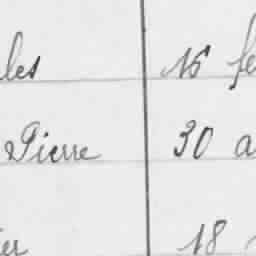 les 16 fe
Pierre 30 a
er 18